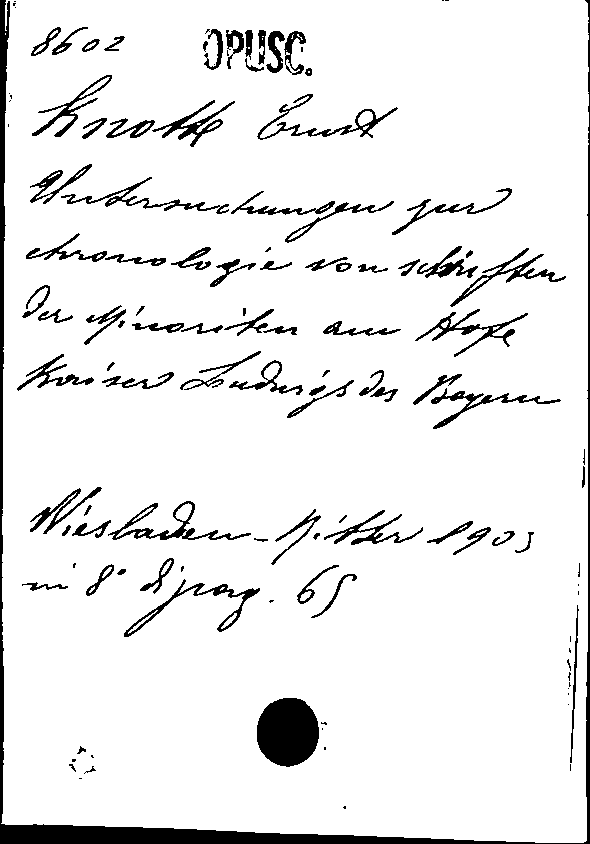 8602 OPUSC.
Knoth Ernst
Untersuchungen zur
chronologie von schriften
der Minoriten am Hofe
Kaiser Ludwigs des Bayern
Wiesbaden - Ritter 1903
in 8° di pag. 65